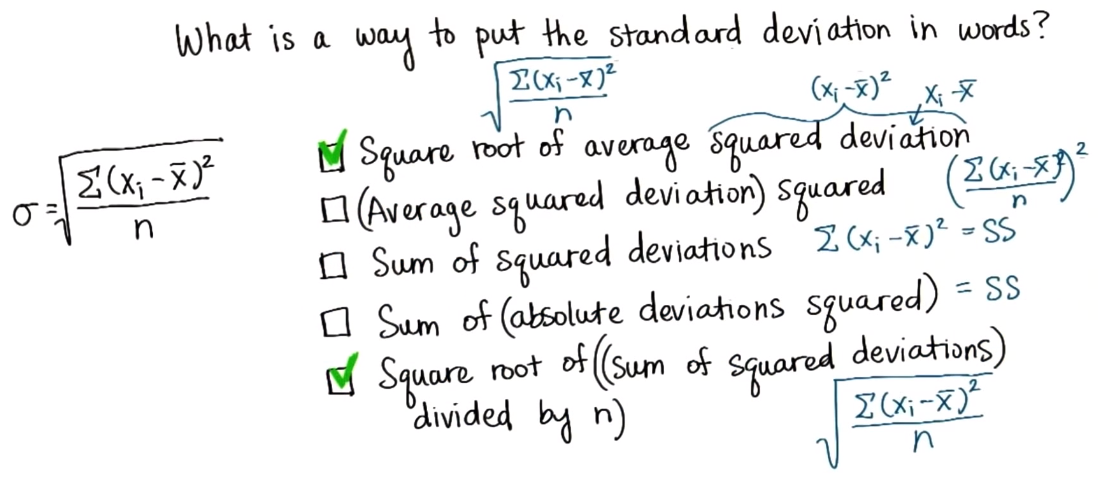 What is a way to put the standard deviation in words?
√(Σ(xᵢ-x̄)²/n)
(xᵢ-x̄)² xᵢ-x̄
Square root of average squared deviation
σ=√(Σ(xᵢ-x̄)²/n)
(Average squared deviation) squared (Σ(xᵢ-x̄)²/n)²
Sum of squared deviations Σ(xᵢ-x̄)² = SS
Sum of (absolute deviations squared) = SS
Square root of ((sum of squared deviations)
divided by n) √(Σ(xᵢ-x̄)²/n)